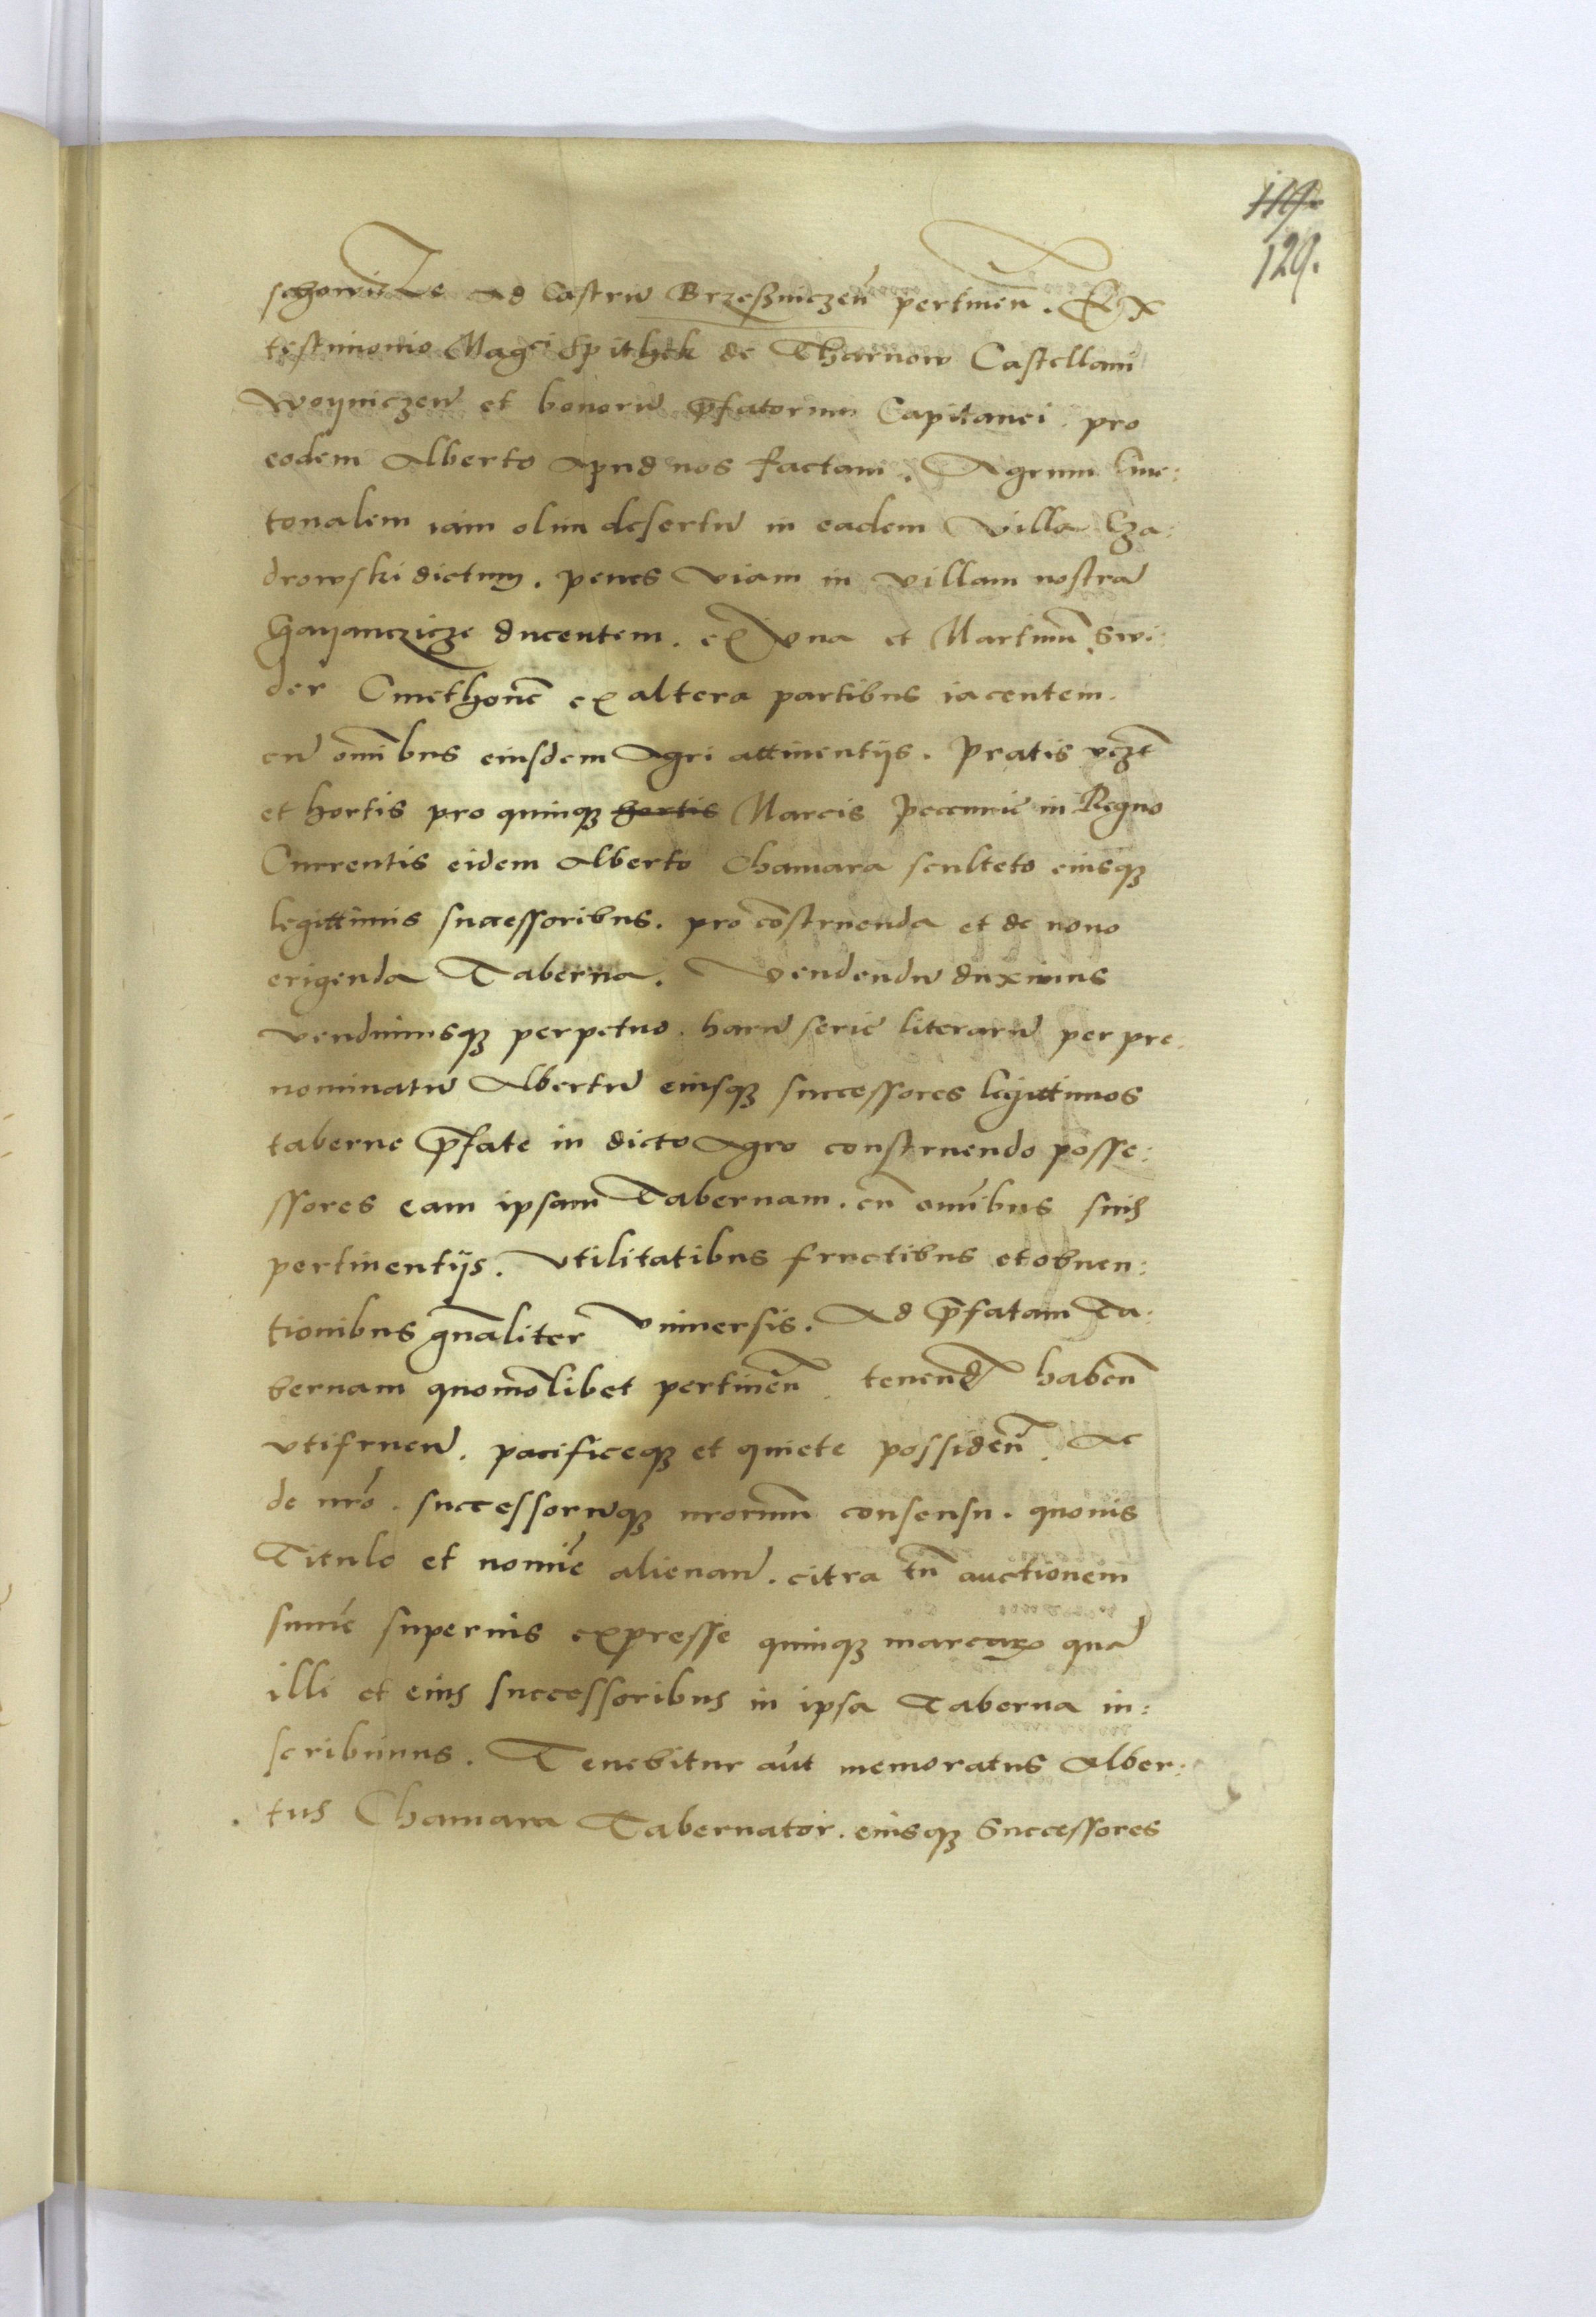 119.
129.
schowicze ad Castrū Brzeßniczeñ pertineñ. Ex
testimonio Magci Spithek de Tharnow Castellani
woyniczeñ et bonorū p̄fatorum Capitanei. pro
eodem Alberto apud nos factam. Agrum kme:
tonalem iam olim desertū in eadem villa Cza:
drowski dictum. penes viam in villam nostrā
Gayanczicze ducentem. ex vna et Martinū Swi:
der Cmethonē ex altera partibus iacentem.
cū om̄ibus eiusdem Agri attinentijs. Pratis vczt
et hortis pro quinqȝ hortis Marcis Pecunie in Regno
Currentis eidem Alberto Chamara sculteto eiusqȝ
legittimis successoribus. pro cōstruenda et de nouo
erigenda Taberna. Vendendū duximus
vendimusqȝ perpetuo. harū serie literarū per pre:
nominatū Albertū eiusqȝ successores legittimos
taberne p̄fate in dicto Agro construendo posse:
ssores eam ipsam Tabernam. cū omībus suis
pertinentijs. vtilitatibus fructibus et obuen:
tionibus gn̄aliter vniuersis. Ad p̄fatam Ta:
bernam quomōlibet pertineñ. tenend habeñ
vtifrueñ. pacificeqȝ et quiete possideñ. Ac
de nrō. successorūqȝ nrorum consensu. quouis
Titulo et nomīe alienañ. citra tn̄ auctionem
sume superius expresse quinqȝ marcaꝝ quā
illi et eius successoribus in ipsa Taberna in:
scribimus. Tenebitur aūt memoratus Alber:
tus Chamara Tabernator. eiusqȝ Successores